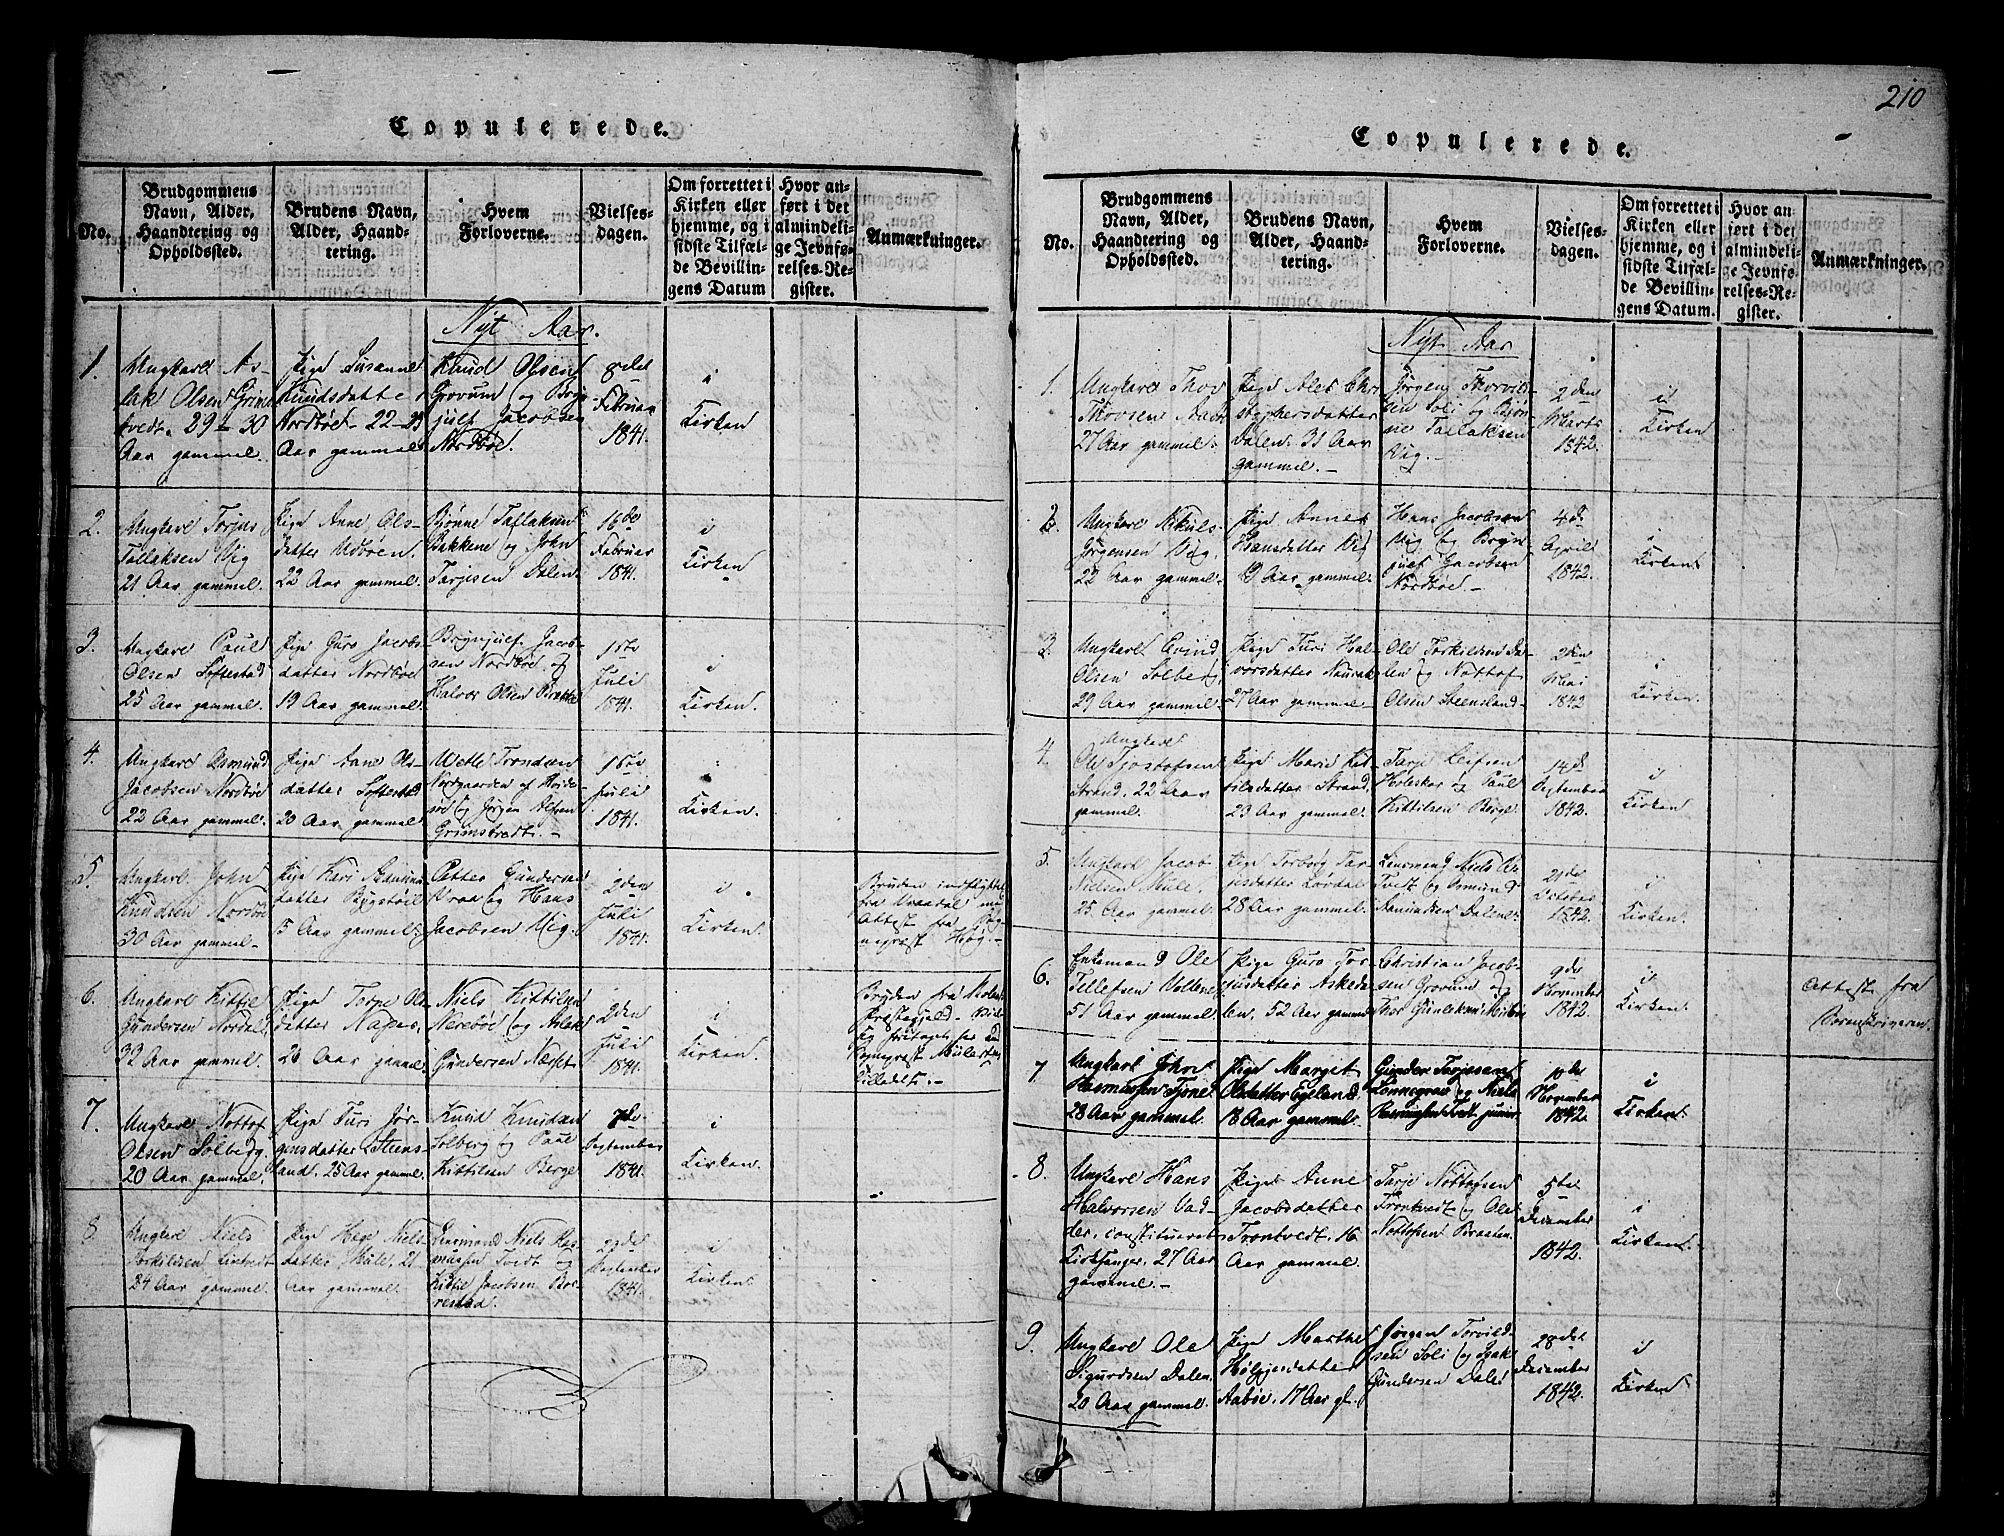 210
Copulerede.
No.
Brudgommens
Navn, Alder,
Haandtering og
Opholdssted.
Brudens Navn,
Alder, Haand-
tering.
Hvem
Forloverne.
Vielses-
dagen.
Om forrettet i
Kirken eller
hjemme, og i
sidste Tilfæl-
de Bevillin-
gens Datum
Hvor an-
ført i det
almindeli-
ge Jevnfø-
relses-Re-
gister.
Anmærkninger.
Nyt Aar.
1.
Ungkarl As-
lak Olsen Grim-
tvedt. 29-30
Aar gammel.
Pige Susanne
Knudsdatter
Nordbøe 22-23
Aar gammel
Knud Olsen
Grovum og Bryn-
julf Jacobsen
Nordbøe.
Februar
1841.
i
Kirken
2.
Ungkarl Torjus
Tallaksen Vig
21 Aar gammel
Pige Anne Ols-
datter
22 Aar gammel.
Bjønne Tallaksen
Bakkene og John
Tarjesen Dalen
16de
Februar
1841.
i
Kirken
3.
Ungkarl Paul
Olsen Softestad
25 Aar gammel.
Pige Guro Jacobs-
datter Nordbøe
19 Aar gammel.
Brynjulf Jacob-
sen Nordbøe og
Halvor Olsen
1ste
Juli
1841.
i
Kirken.
4.
Ungkarl Osmund
Jacobsen Nordbøe
22 Aar gammel.
Pige Anne Ols-
datter Softestad
20 Aar gammel.
Vetle Trondsen
Nordgaarden af
og Jørgen
Grimstvedt.-
1ste
Juli
1841.
i
Kirken.
5.
Ungkarl John
Knudsen
30 Aar gammel-
Pige Kari
datter Bygstøil
Aar gammel.
Petter Gundersen
Vraa og Hans
Jacobsen Vig.
2den
Juli
1841.
i
Kirken.
Bruden indflyttet
fra Vraadal med
Attest fra Sog-
neprest
6.
Ungkarl Kittil
Gundersen
Aar gammel.
Pige Torge Ols-
datter
26 Aar gammel
Niels Kittilsen
og Aslak
Gundersen
2den
Juli
1841.
i
Kirken.
Bruden fra
Præstegjeld.
7.
Ungkarl Nottof
Olsen Solberg
20 Aar gammel.
Pige Turi Jør-
gensdatter Steens-
land. 25 Aar gammel.
Knud Knudsen
Solberg og Paul
Kittilsen Berge
7de
September
1841.
i
Kirken.
8.
Ungkarl Niels
Torkildsen
24 Aar gammel.
Pige Hæge Niels-
datter Mule. 21
Aar gammel.
Lensmand Niels Ras-
musen Tvedt og
Kittil Jacobsen Bor-
restad.
September
1841.
i
Kirken.
Copulerede.
No.
Brudgommens
Navn, Alder,
Haandtering og
Opholdssted.
Brudens Navn,
Alder, Haand-
tering.
Hvem
Forloverne.
Vielses-
dagen.
Om forrettet i
Kirken eller
hjemme, og i
sidste Tilfæl-
de Bevillin-
gens Datum.
Hvor an-
ført i det
almindeli-
ge Jevnfø-
relses-Re-
gister.
Anmærkninger.
Nyt Aar
1.
Ungkarl Thor
Thorsen
27 Aar gammel.
Pige Alet Chri-
stophersdatter
Dalen. 31 Aar
gammel.-
Jørgen Thorvild-
sen Soli og Bjøn-
ne Tallaksen
Vig.-
2den
Marts
1842.
i
Kirken
2.
Ungkarl
Jørgensen Vig.
22 Aar gammel.
Pige Anne
Hansdatter Vig
19 Aar gammel.
Hans Jacobsen
Vig og Bryn-
julf Jacobsen
Nordbøe.-
4de
April
1842.
i
Kirken
3.
Ungkarl Evind
Olsen Solberg,
29 Aar gammel.
Pige Turi Hal-
vorsdatter
27 Aar gammel.
Ole Torkildsen Da-
len og Nottof
Olsen Steensland-
2den
Mai
1842
i
Kirken.
4.
Ungkarl
Ole Tjostofsen
Strand. 22 Aar
gammel.
Pige Marie Kit-
tilsdatter Strand,
23 Aar gammel.
Tarje Leifsen
og Paul
Kittilsen Berge.
14de
September
1842.
i
Kirken
5.
Ungkarl Jacob
Nielsen Mule.
25 Aar gammel.
Pige Torborg Tar-
jesdatter
28 Aar gammel.
Lensmand Niels
Tvedt og Osmund
Dalen.
October
1842.
i
Kirken.
6.
Enkemand Ole
Tellefsen
51 Aar gammel.
Pige Guro Tor-
jusdatter Askeda-
len. 52 Aar gammel
Christian Jacob-
sen Grovum og
Thor Gunlaksen
9de
November
1842.
i
Kirken.
Attest fra
7
Ungkarl John
Rasmusen
28 Aar gammel.
Pige Margit
Olsdatter Egeland
18 Aar gammel.
Gunder Tarjesen
og Niels
Rasmusen Tvedt junior
November
1842.
i
Kirken.
8.
Ungkarl Hans
Halvorsen Vad-
der, constitueret
Kirkesanger. 27 Aar
gammel-
Pige Anne
Jacobsdatter
Trontvedt. 16
Aar gammel.
Tarje Nottofsen
Trontvedt og Ole
Nottofsen Braaten.
5te
December
1842.
i
Kirken.
9.
Ungkarl Ole
Sigurdsen Dalen.
20 Aar gammel.
Pige Marthe
Holgjesdatter
Aabøe. 17 Aar gl.
Jørgen Torvild-
sen Soli og Isak
Gundersen Dale
28de
December
1842.
i
Kirken